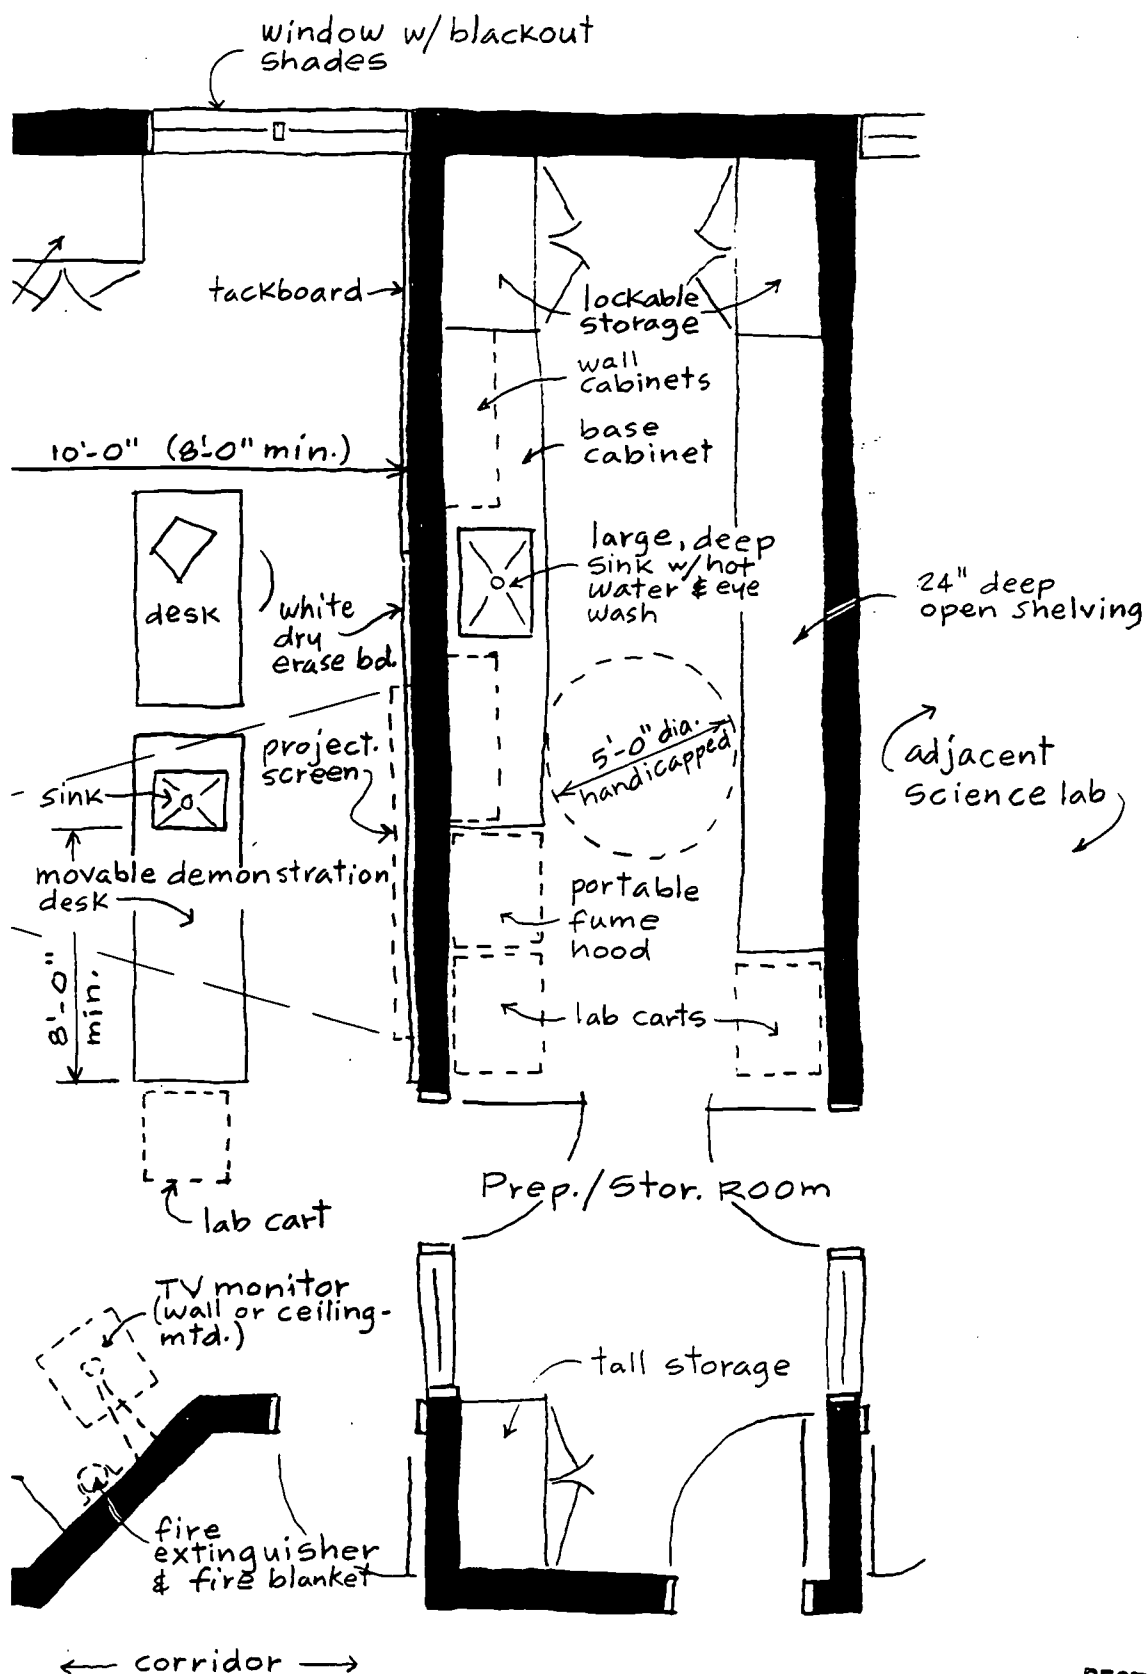 window w/ blackout
shades
tackboard
lockable
storage
wall
cabinets
base
cabinet
10'-0" (8'-0" min.)
desk
large, deep
sink w/ hot
water & eye
wash
24" deep
open shelving
white
dry
erase bd.
project.
screen
5'-0" dia.
handicapped
adjacent
science lab
sink
movable demonstration
desk
8'-0"
min.
portable
fume
hood
lab carts
Prep./Stor. Room
lab cart
TV monitor
(wall or ceiling-
mtd.)
tall storage
fire
extinguisher
& fire blanket
corridor